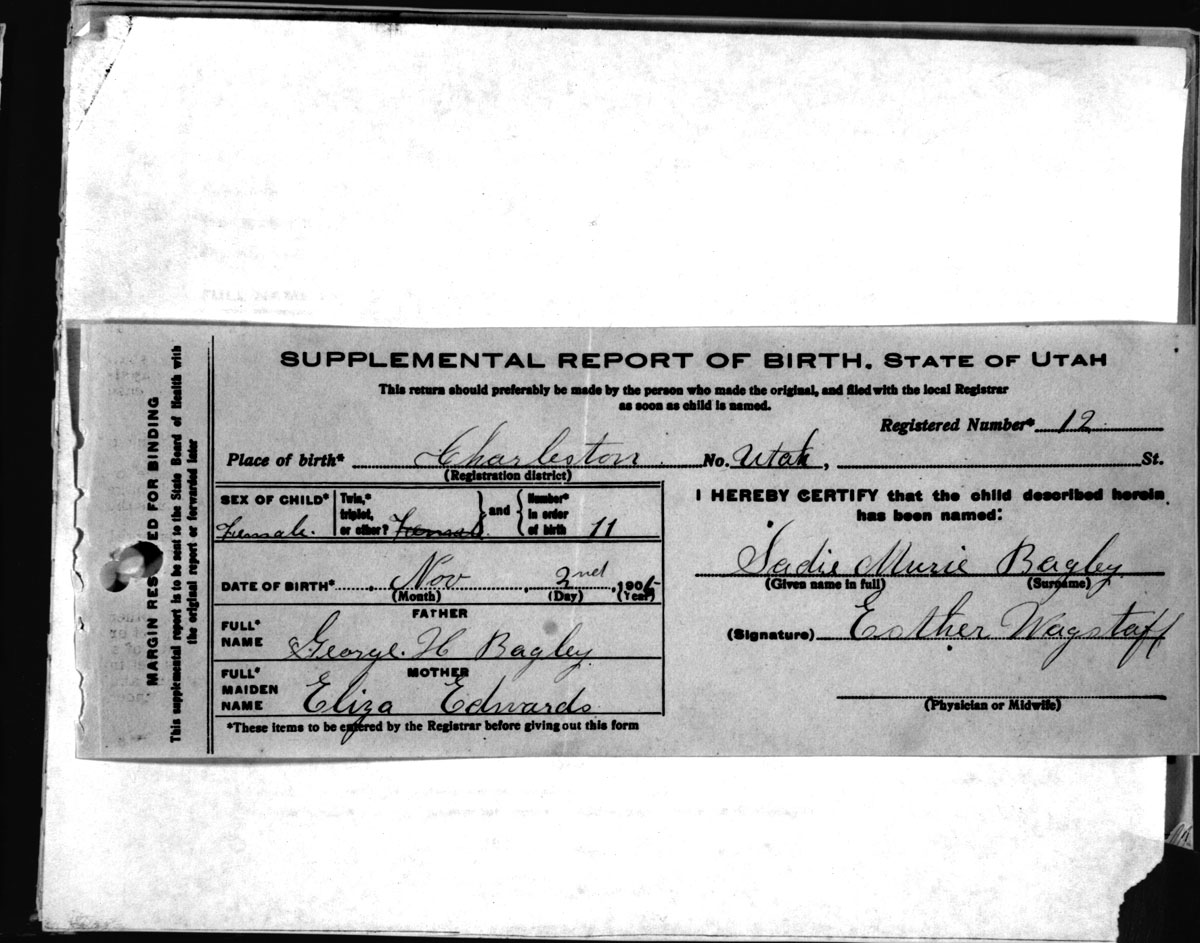 SUPPLEMENTAL REPORT OF BIRTH. STATE OF UTAH
This return should preferably be made by the person who made the original, and filed with the local Registrar
as soon as child is named.
Registered Number* 12
Place of birth* Charleston No. Utah, St.
(Registration district)
SEX OF CHILD* Female.
Twin,*
triplet,
or other? Female
and
Number*
in order
of birth 11
DATE OF BIRTH* Nov 2nd, 190
(Month) (Day) (Year)
FATHER
FULL*
NAME George. H Bagley
MOTHER
FULL*
MAIDEN
NAME Eliza Edwards
*These items to be entered by the Registrar before giving out this form
I HEREBY CERTIFY that the child described herein
has been named:
Sadie Murie Bagley
(Given name in full) (Surname)
(Signature) Esther Wagstaff
(Physician or Midwife)
MARGIN RESERVED FOR BINDING
This supplemental report is to be sent to the State Board of Health with
the original report or forwarded later